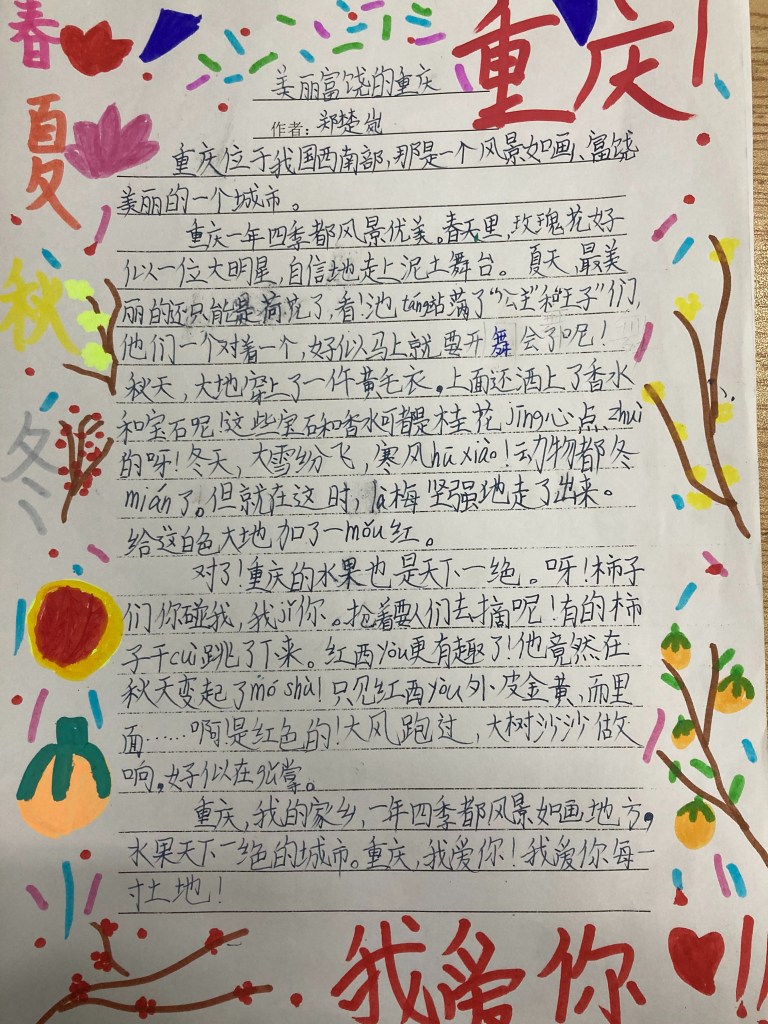 春
重庆!
美丽富饶的重庆
作者:郑楚岚
夏
重庆位于我国西南部,那是一个风景如画、富饶
美丽的一个城市。
重庆一年四季都风景优美。春天里,玫瑰花好
似一位大明星,自信地走上泥土舞台。夏天,最美
秋
丽的还只能是荷花了,看!池táng站满了“公主”和“王子”们,
他们一个对着一个,好似马上就要开舞会了呢!
秋天,大地穿上了一件黄毛衣。上面还洒上了香水
冬
和宝石呢!这些宝石和香水可都是桂花jīng心点zhuì
的呀!冬天,大雪纷飞,寒风hū xiào!动物都冬
mián了。但就在这时,là梅坚强地走了出来。
给这白色大地加了一mǒu红。
对了!重庆的水果也是天下一绝。呀!柿子
们你碰我,我jǐ你。抢着要人们去摘呢!有的柿
子干cuì跳了下来。红西yòu更有趣了!他竟然在
秋天变起了mó shù!只见红西yòu外皮金黄,而里
面……啊!是红色的!大风跑过,大树沙沙做
响,好似在gǔ掌。
重庆,我的家乡,一年四季都风景如画地方,
水果天下一绝的城市。重庆,我爱你!我爱你每一
寸土地!
我爱你!!